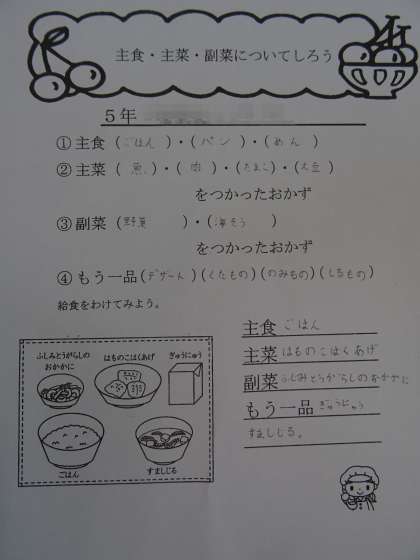 主食・主菜・副菜についてしろう
５年
①主食（ごはん）・（パン）・（めん）
②主菜（魚）・（肉）・（たまご）・（大豆）
をつかったおかず
③副菜（野菜）・（海そう）
をつかったおかず
④もう一品（デザート）（くだもの）（のみもの）（しるもの）
給食をわけてみよう。
ふしみとうがらしの
おかかに
はものこはくあげ
ぎゅうにゅう
ごはん
すましじる
主食 ごはん
主菜 はものこはくあげ
副菜 ふしみとうがらしのおかかに
もう一品 ぎゅうにゅう
すましじる。